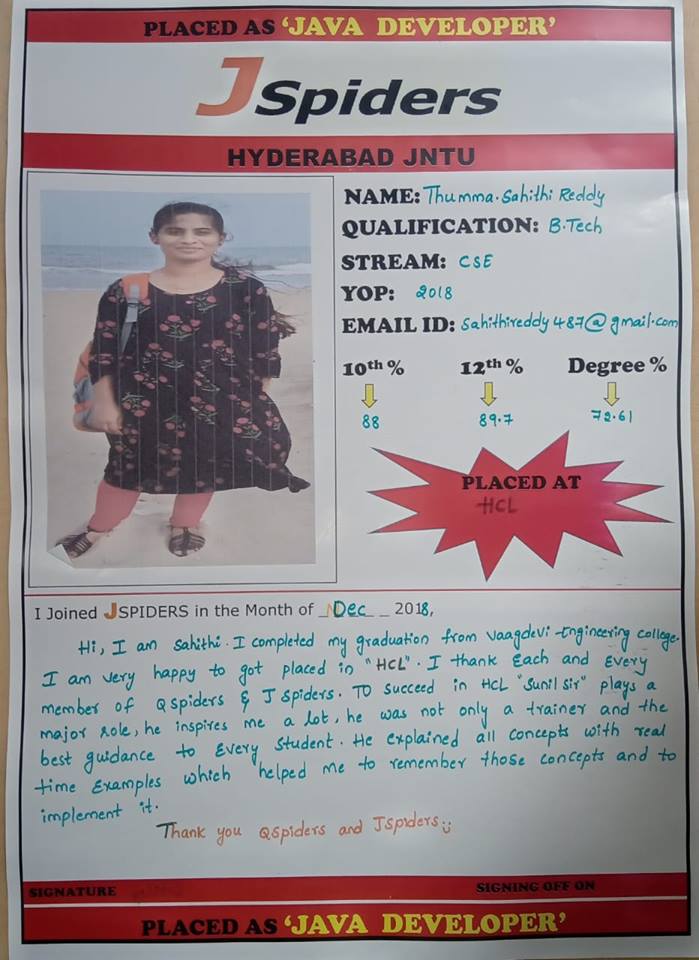 PLACED AS ‘JAVA DEVELOPER’
JSpiders
HYDERABAD JNTU
NAME: Thumma.Sahithi Reddy
QUALIFICATION: B.Tech
STREAM: CSE
YOP: 2018
EMAIL ID: Sahithireddy487@gmail.com
10th % 12th % Degree %
88 89.7 72.61
PLACED AT
HCL
I Joined JSPIDERS in the Month of _Dec_ _ 2018,
Hi, I am Sahithi. I completed my graduation from Vaagdevi Engineering college.
I am very happy to got placed in "HCL". I thank Each and Every
member of Qspiders & J Spiders. To succeed in HCL "Sunil Sir" plays a
major role, he inspires me a lot, he was not only a trainer and the
best guidance to Every Student. He Explained all concepts with real
time Examples which helped me to remember those concepts and to
implement it.
Thank you Qspiders and Jspiders :)
SIGNATURE SIGNING OFF ON
PLACED AS ‘JAVA DEVELOPER’